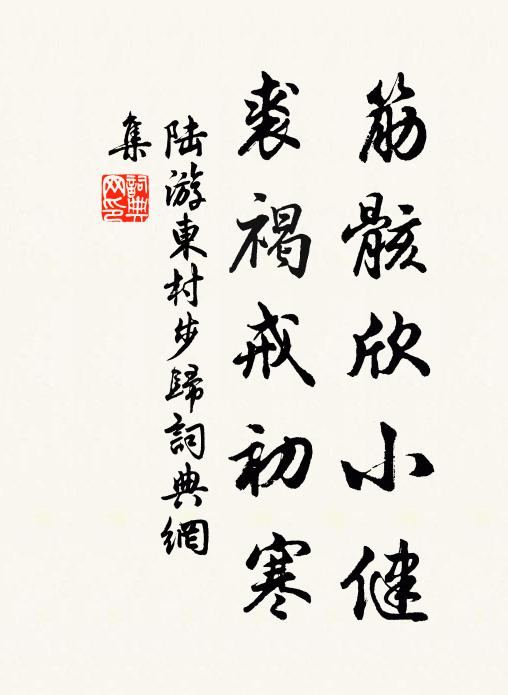 筋骸欣小健
裘褐戒初寒
陆游東村步歸詞典網
集
詞典
网印